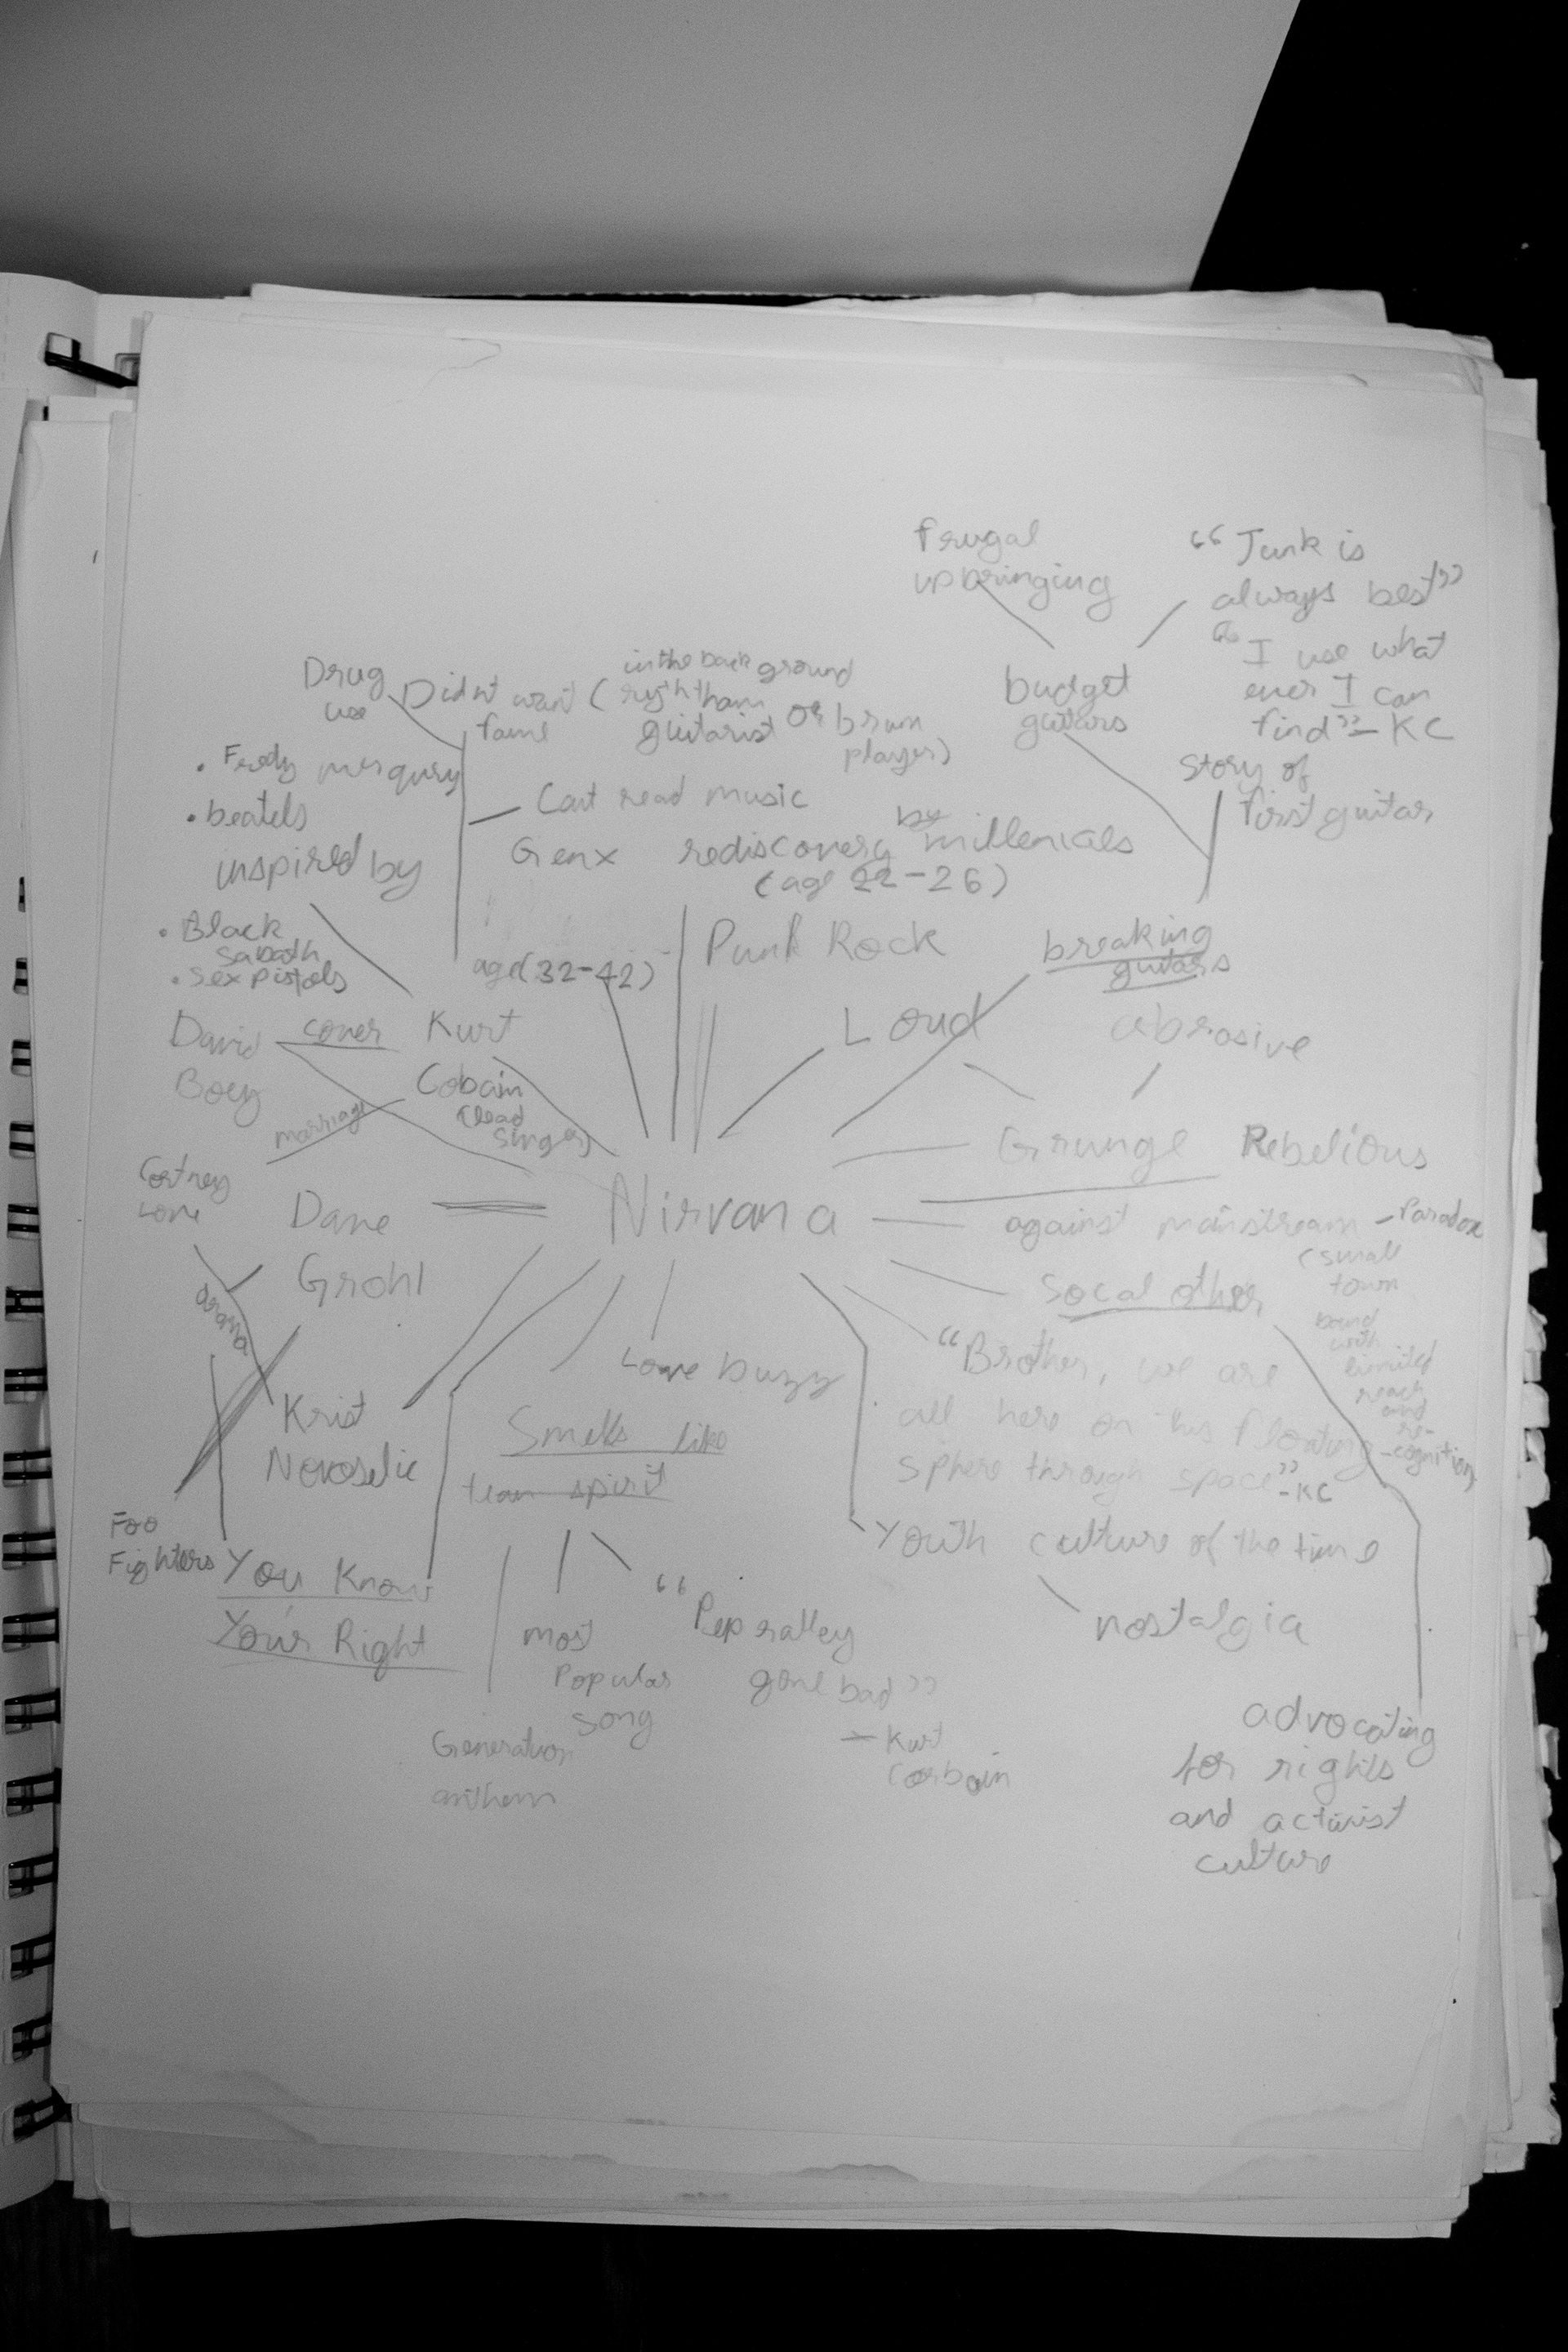 Frugal
upbringing
“Junk is
always best”
“I use what
ever I can
find” - KC
budget
guitars
Story of
first guitar
Drug
use
Didn't want
fame
(in the background
guitarist or
player)
Cant read music
Gen x rediscovery by millenials
(age 22-26)
• Fredy merqury
• beatels
inspired by
• Black
Sabath
• Sex pistols
age(32-42)
Punk Rock
breaking
guitars
Loud
abrosive
David
Boey
cover
Kurt
Cobain
(lead
singer)
marriage
Cortney
Love
Dave
Grohl
drama
Nirvana
Grunge
Rebelious
against mainstream - Paradox
(small
town
band
with
limited
reach
and
re-
-cognition)
Socal other
“Brother, we are
all here on this floating
sphere through space”
-KC
Krist
Novoselic
Love buzz
Smells like
tean spirit
Foo
Fighters
You Know
You'r Right
Youth culture of the time
nostalgia
most
Popular
song
“Pep ralley
gone bad”
- Kurt
Corbain
Generation
anthem
advocating
for rights
and activist
culture